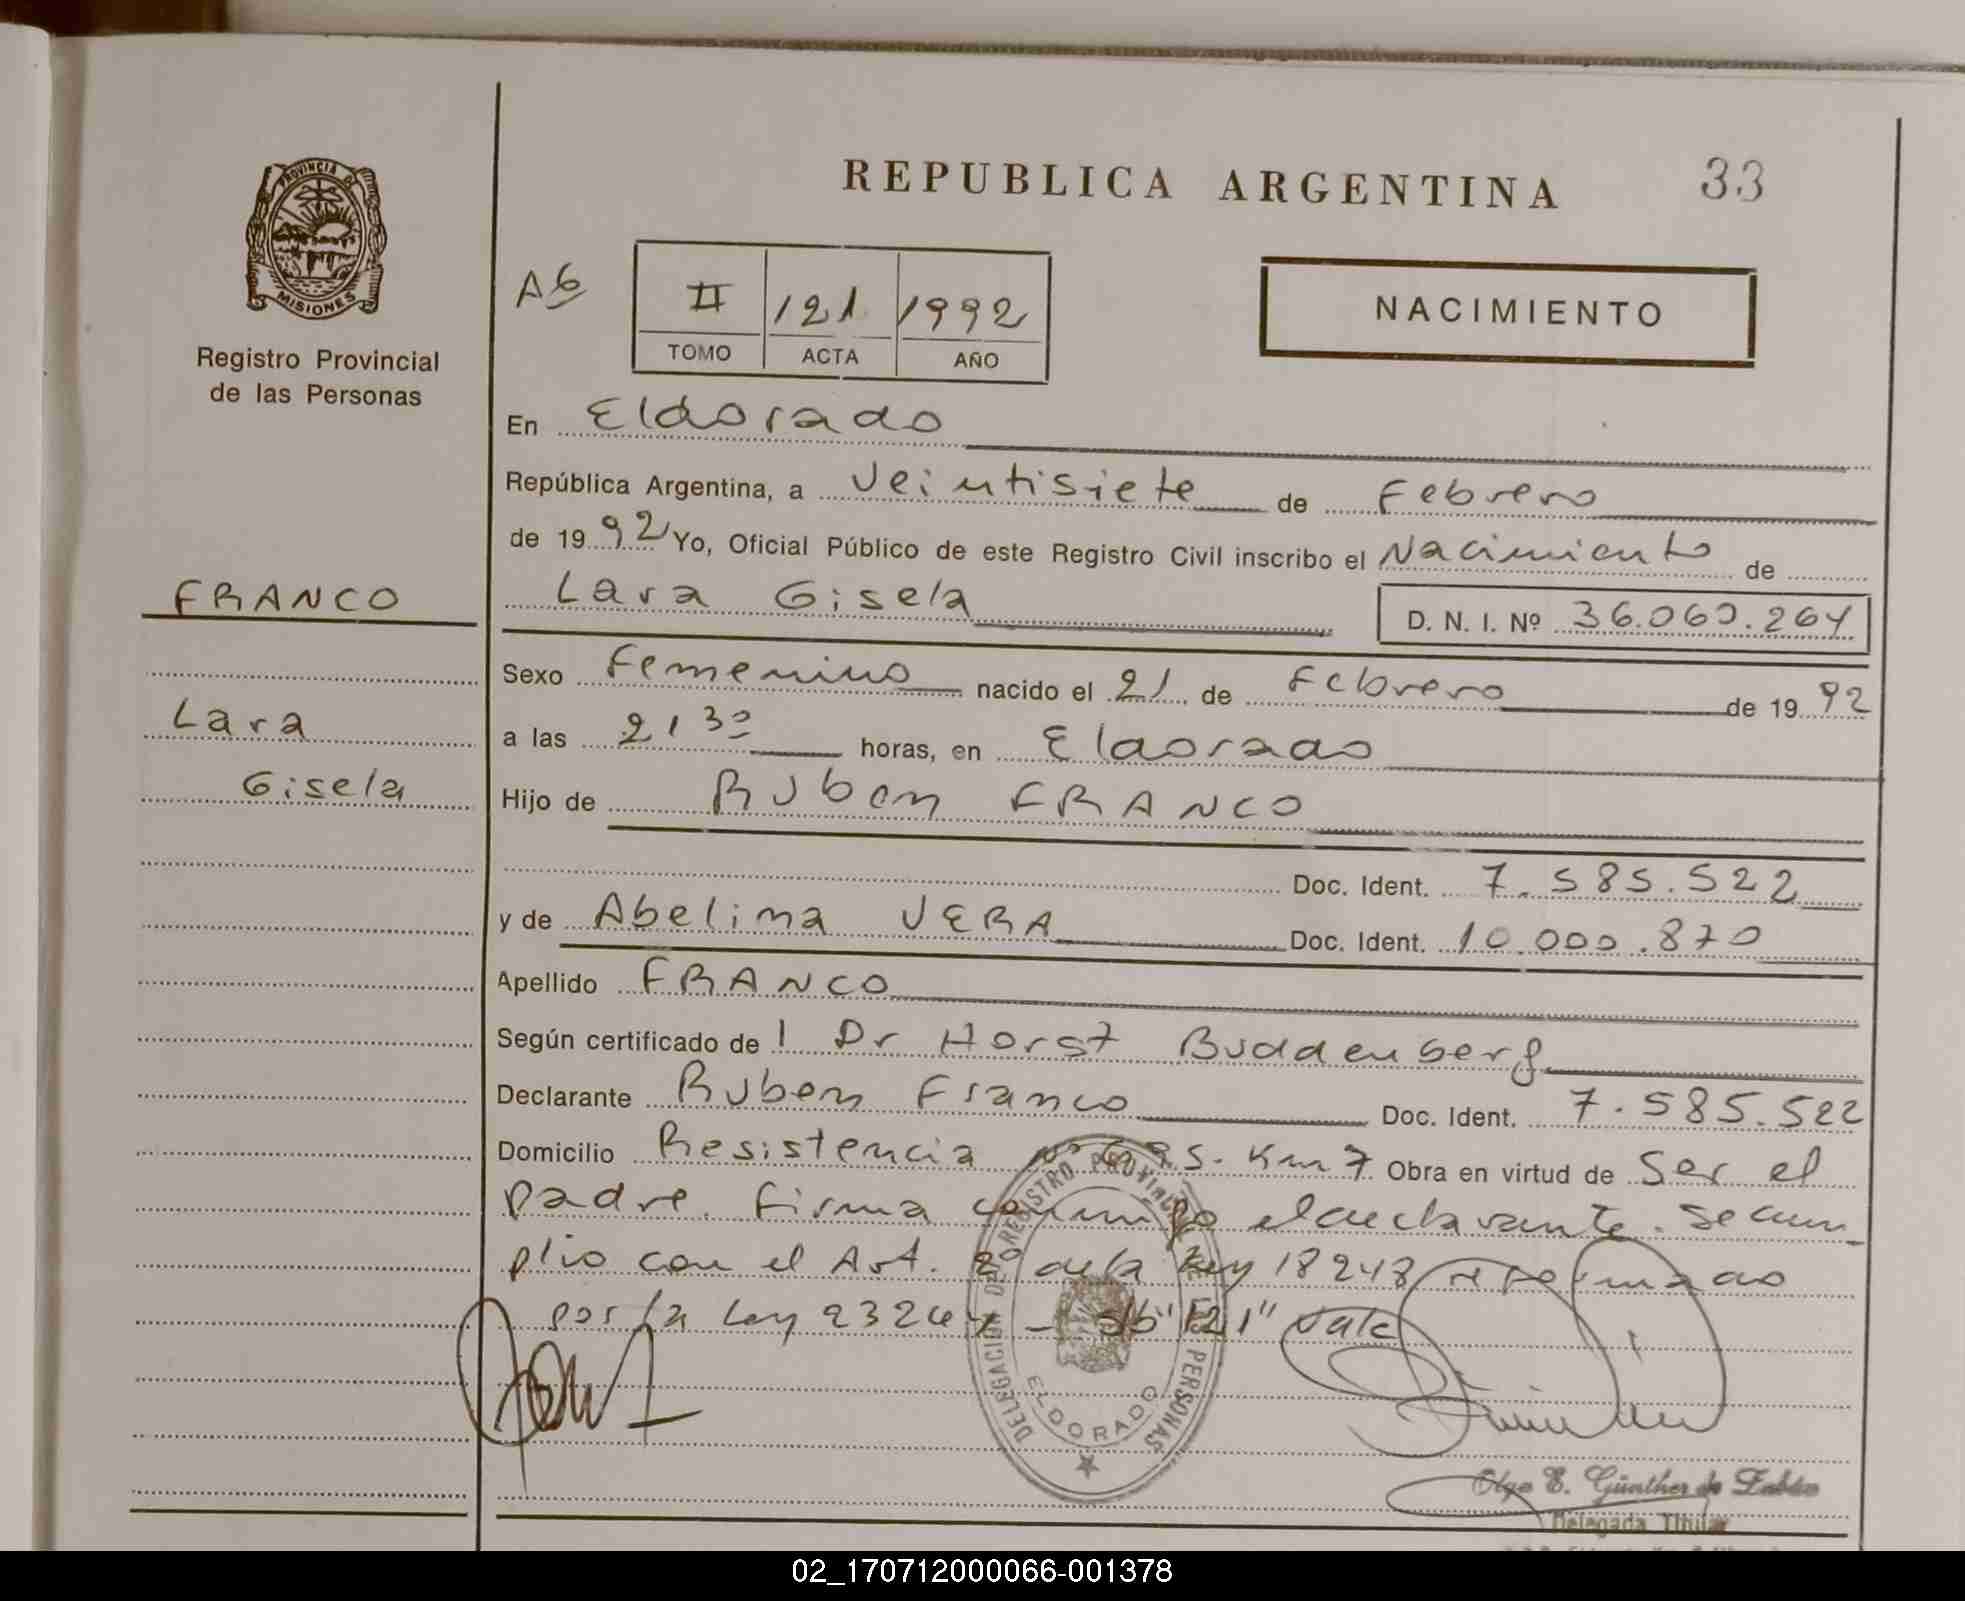 REPUBLICA ARGENTINA 33
PROVINCIA DE
MISIONES
Registro Provincial
de las Personas
A6
II 121 1992
TOMO ACTA AÑO
NACIMIENTO
En Eldorado
República Argentina, a Veintisiete de Febrero
de 1992 Yo, Oficial Público de este Registro Civil inscribo el Nacimiento de
FRANCO
Lara Gisela D. N. I. Nº 36.060.264
Sexo Femenino nacido el 21 de Febrero de 1992
Lara
a las 21 30 horas, en Eldorado
Gisela
Hijo de Ruben FRANCO
Doc. Ident. 7.585.522
y de Abelina VERA Doc. Ident. 10.000.870
Apellido FRANCO
Según certificado de l Dr Horst Buddenberg
Declarante Ruben Franco Doc. Ident. 7.585.522
Domicilio Resistencia Nº Km 7 Obra en virtud de Ser el
padre. firma conmigo el declarante. Se cum
plio con el Art. 8º de la Ley 18248 reformado
por la Ley 23264 - s/b "121" Vale
DELEGACION DEL REGISTRO PROVINCIAL DE LAS PERSONAS
ELDORADO
Olga E. Günther de
Delegada Titular
02_170712000066-001378